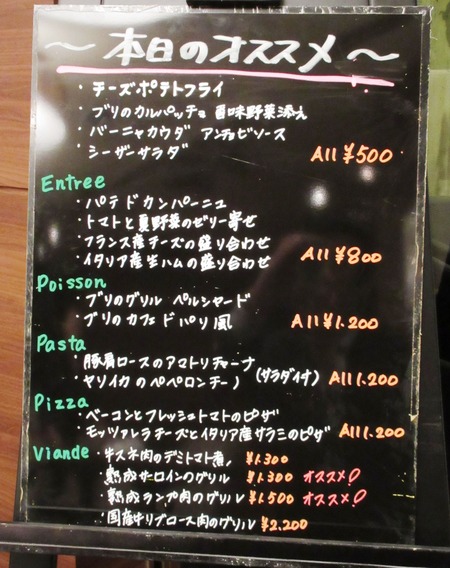 ～ 本日のオススメ ～
・チーズポテトフライ
・ブリのカルパッチョ 香味野菜添え
・バーニャカウダ アンチョビソース
・シーザーサラダ All ¥500
Entree
・パテドカンパーニュ
・トマトと夏野菜のゼリー寄せ
・フランス産チーズの盛り合わせ
・イタリア産生ハムの盛り合わせ All ¥800
Poisson
・ブリのグリル ペルシャード
・ブリのカフェドパリ風 All ¥1.200
Pasta
・豚肩ロースのアマトリチャーナ
・ヤリイカのペペロンチーノ (サラダ付) All 1.200
Pizza
・ベーコンとフレッシュトマトのピザ
・モッツァレラチーズとイタリア産サラミのピザ All 1.200
Viande ・牛スネ肉のデミトマト煮 ¥1.300
・熟成サーロインのグリル ¥1.300 オススメ!
・熟成ランプ肉のグリル ¥1.500 オススメ!
・国産牛リブロース肉のグリル ¥2.200